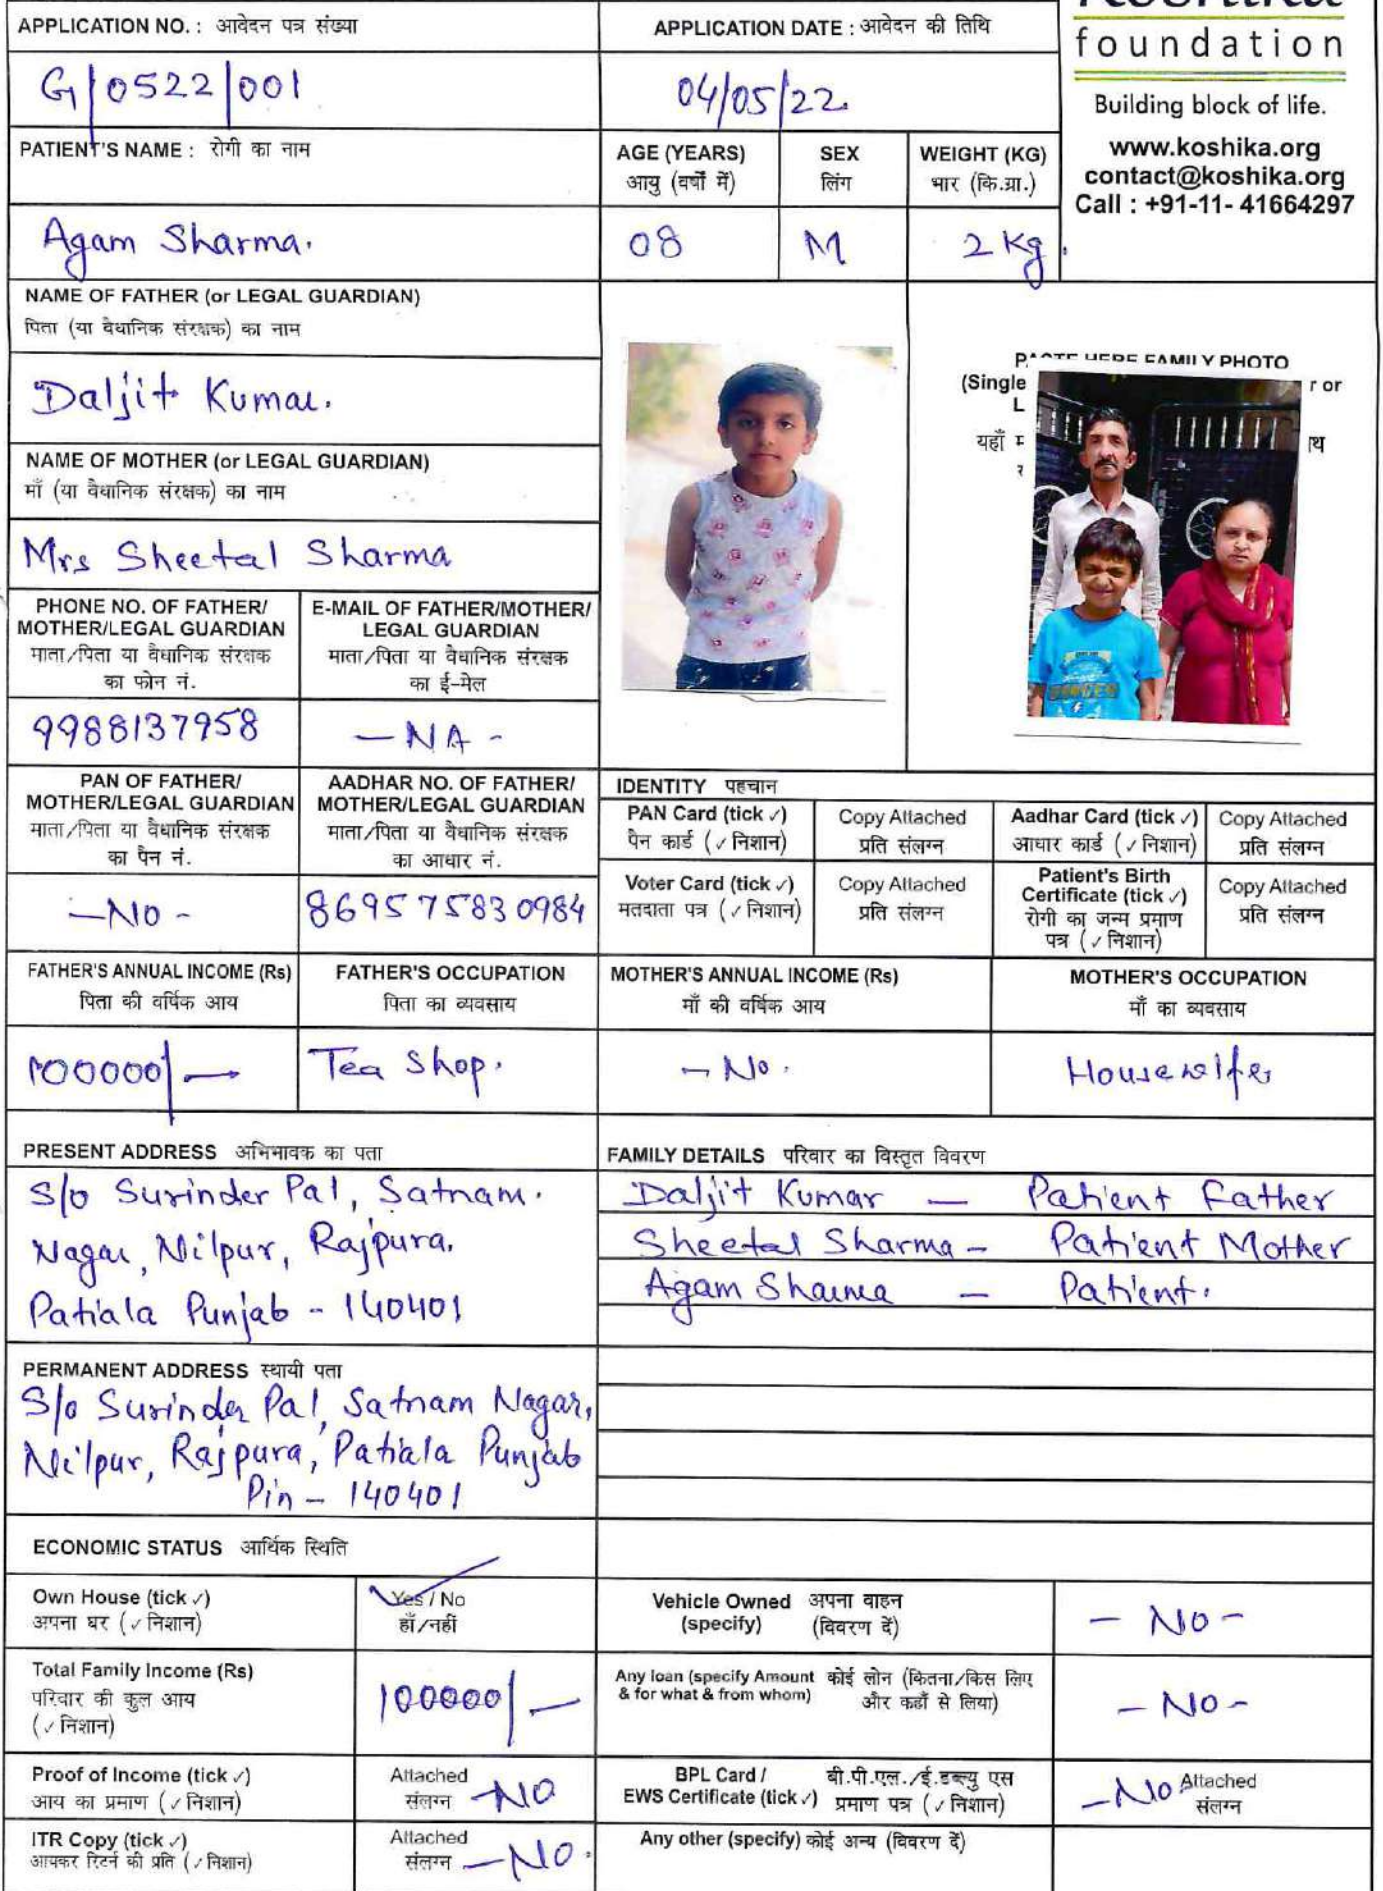 APPLICATION NO. : आवेदन पत्र संख्या
G/0522/001
APPLICATION DATE : आवेदन की तिथि
04/05/22
Koshika
foundation
Building block of life.
www.koshika.org
contact@koshika.org
Call : +91-11- 41664297
PATIENT'S NAME : रोगी का नाम
Agam Sharma.
AGE (YEARS)
आयु (वर्षों में)
08
SEX
लिंग
M
WEIGHT (KG)
भार (कि.ग्रा.)
2 Kg.
NAME OF FATHER (or LEGAL GUARDIAN)
पिता (या वैधानिक संरक्षक) का नाम
Daljit Kumar.
NAME OF MOTHER (or LEGAL GUARDIAN)
माँ (या वैधानिक संरक्षक) का नाम
Mrs Sheetal Sharma
PASTE HERE FAMILY PHOTO
(Single
r or
L
यहाँ
PHONE NO. OF FATHER/
MOTHER/LEGAL GUARDIAN
माता/पिता या वैधानिक संरक्षक
का फोन नं.
9988137958
E-MAIL OF FATHER/MOTHER/
LEGAL GUARDIAN
माता/पिता या वैधानिक संरक्षक
का ई-मेल
- NA -
PAN OF FATHER/
MOTHER/LEGAL GUARDIAN
माता/पिता या वैधानिक संरक्षक
का पैन नं.
- No -
AADHAR NO. OF FATHER/
MOTHER/LEGAL GUARDIAN
माता/पिता या वैधानिक संरक्षक
का आधार नं.
869575830984
IDENTITY पहचान
PAN Card (tick ✓)
पैन कार्ड (✓ निशान)
Copy Attached
प्रति संलग्न
Aadhar Card (tick ✓)
आधार कार्ड (✓ निशान)
Copy Attached
प्रति संलग्न
Voter Card (tick ✓)
मतदाता पत्र (✓ निशान)
Copy Attached
प्रति संलग्न
Patient's Birth
Certificate (tick ✓)
रोगी का जन्म प्रमाण
पत्र (✓ निशान)
Copy Attached
प्रति संलग्न
FATHER'S ANNUAL INCOME (Rs)
पिता की वर्षिक आय
100000/-
FATHER'S OCCUPATION
पिता का व्यवसाय
Tea Shop.
MOTHER'S ANNUAL INCOME (Rs)
माँ की वर्षिक आय
- No.
MOTHER'S OCCUPATION
माँ का व्यवसाय
Housewife
PRESENT ADDRESS अभिभावक का पता
S/o Surinder Pal, Satnam.
Nagar, Nilpur, Rajpura.
Patiala Punjab - 140401
FAMILY DETAILS परिवार का विस्तृत विवरण
Daljit Kumar - Patient Father
Sheetal Sharma - Patient Mother
Agam Sharma - Patient.
PERMANENT ADDRESS स्थायी पता
S/o Surinder Pal, Satnam Nagar,
Nilpur, Rajpura, Patiala Punjab
Pin - 140401
ECONOMIC STATUS आर्थिक स्थिति
Own House (tick ✓)
अपना घर (✓ निशान)
Yes / No
हाँ/नहीं
Vehicle Owned अपना वाहन
(specify) (विवरण दें)
- No -
Total Family Income (Rs)
परिवार की कुल आय
(✓ निशान)
100000/-
Any loan (specify Amount कोई लोन (कितना/किस लिए
& for what & from whom) और कहाँ से लिया)
- No -
Proof of Income (tick ✓)
आय का प्रमाण (✓ निशान)
Attached
संलग्न - NO
BPL Card / बी.पी.एल./ई.डब्ल्यु एस
EWS Certificate (tick ✓) प्रमाण पत्र (✓ निशान)
- No Attached
संलग्न
ITR Copy (tick ✓)
आयकर रिटर्न की प्रति (✓ निशान)
Attached
संलग्न - NO.
Any other (specify) कोई अन्य (विवरण दें)